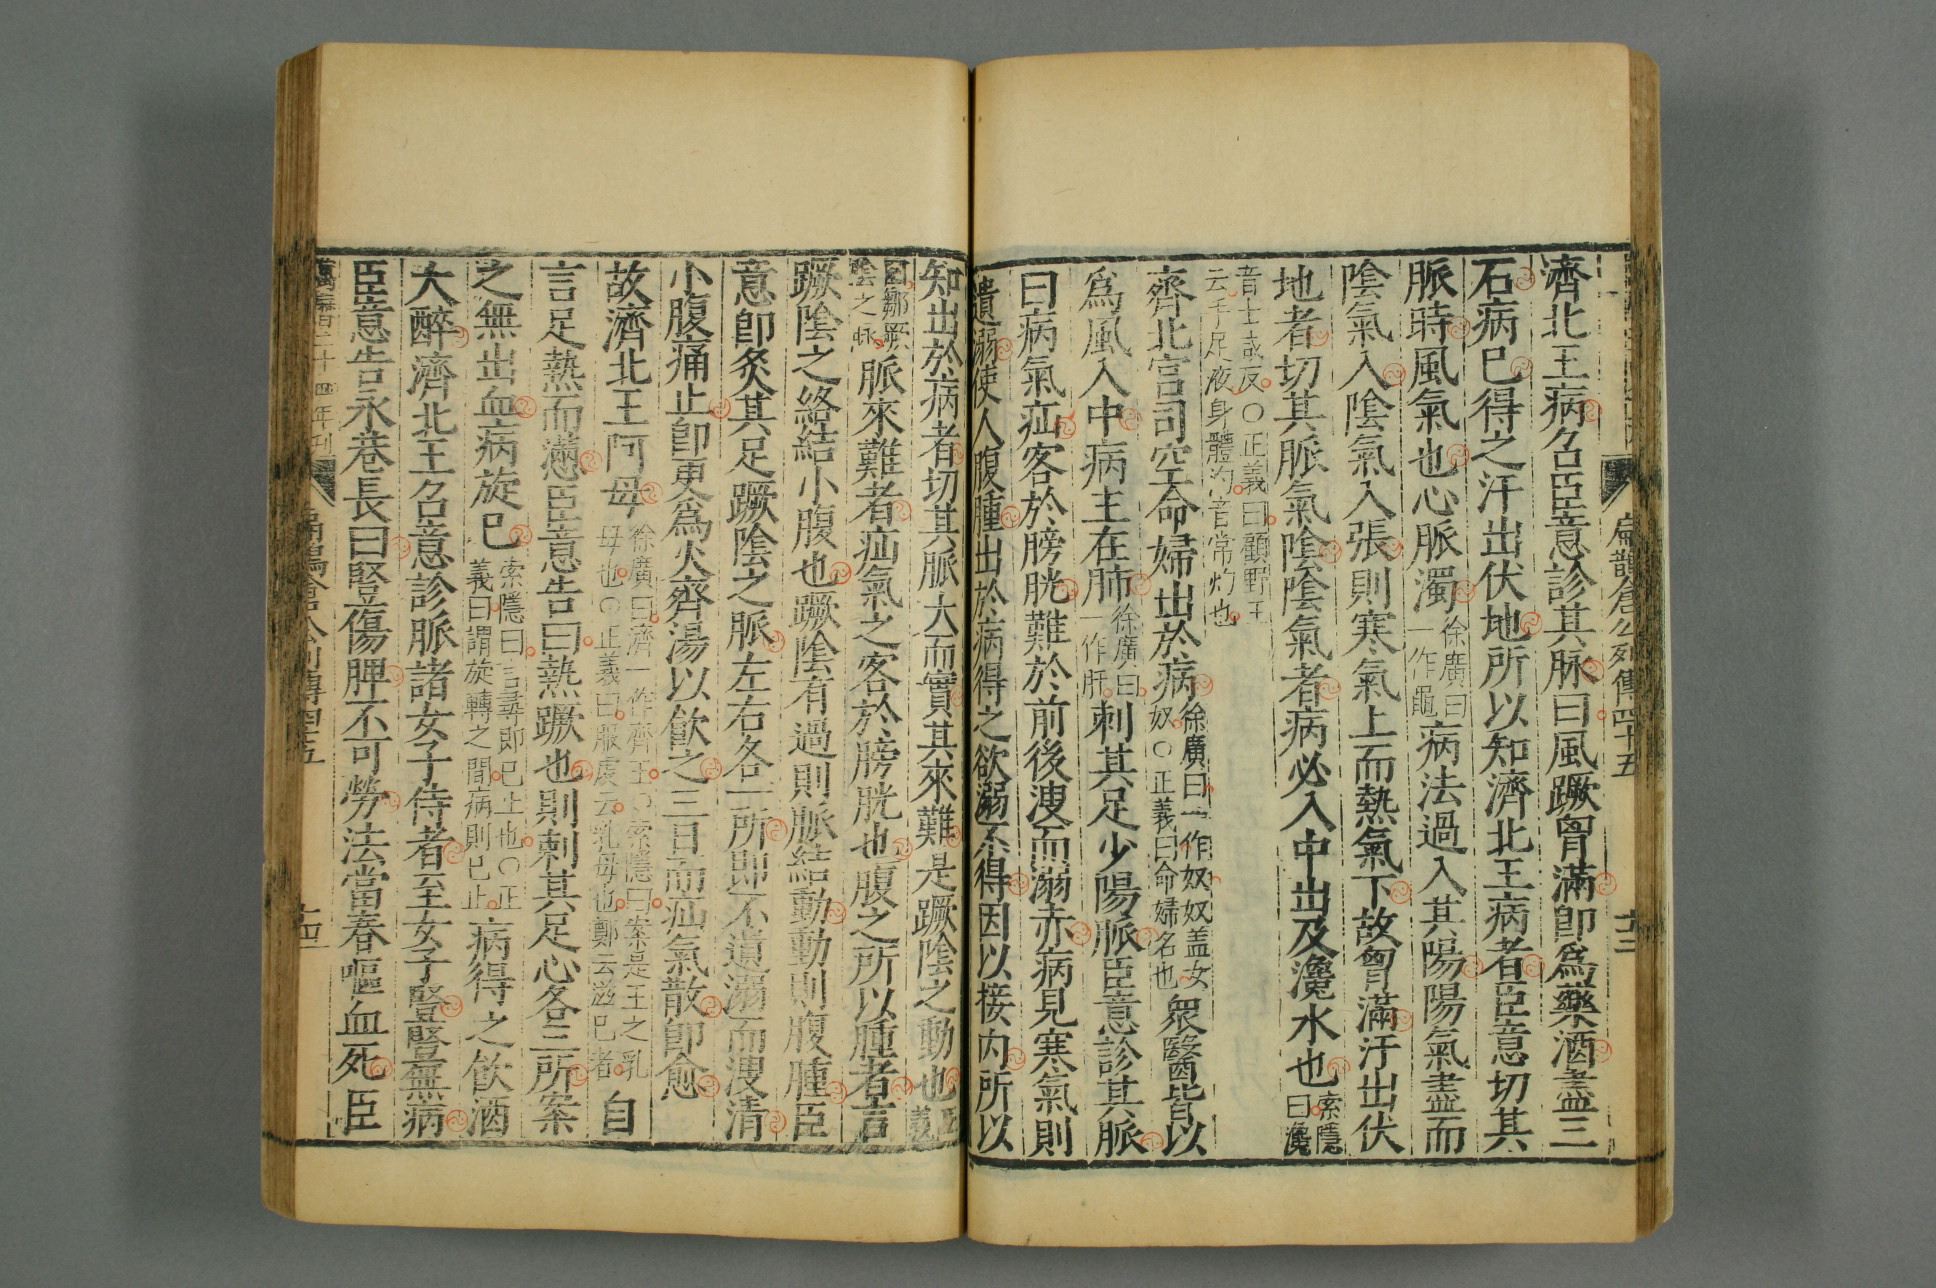 扁鵲倉公列傳四十五
濟北王病召臣意診其脉曰風蹶胷滿卽爲藥酒盡三
石病已得之汗出伏地所以知濟北王病者臣意切其
脈時風氣也心脈濁徐廣曰一作黽病法過入其陽陽氣盡而
陰氣入陰氣入張則寒氣上而熱氣下故胷滿汗出伏
地者切其脈氣陰陰氣者病必入中出及瀺水也索隱曰瀺
音士咸反○正義曰顧野王云手足液身體汋音常灼也
齊北宮司空命婦出於病徐廣曰一作奴奴盖女奴○正義曰命婦名也衆醫皆以
爲風入中病主在肺徐廣曰一作肝刺其足少陽脈臣意診其脈
曰病氣疝客於膀胱難於前後溲而溺赤病見寒氣則
遺溺使人腹腫出於病得之欲溺不得因以接內所以
知出於病者切其脈大而實其來難是蹶陰之動也正義
曰鄒蹶陰之脉脈來難者疝氣之客於膀胱也腹之所以腫者言
蹶陰之絡結小腹也蹶陰有過則脈結動動則腹腫臣
意卽灸其足蹶陰之脈左右各一所卽不遺溺而溲清
小腹痛止卽更爲火齊湯以飲之三日而疝氣散卽愈
故濟北王阿母徐廣曰濟一作齊王○索隱曰案是王之乳母也○正義曰服虔云乳母也鄭云慈己者自
言足熱而懣臣意告曰熱蹶也則刺其足心各三所案
之無出血病旋已索隱曰言尋卽已止也○正義曰謂旋轉之間病則已止病得之飲酒
大醉濟北王召意診脈諸女子侍者至女子豎豎無病
臣意告永巷長曰豎傷脾不可勞法當春嘔血死臣
萬曆二十四年刊
扁鵲倉公列傳四十五
十四